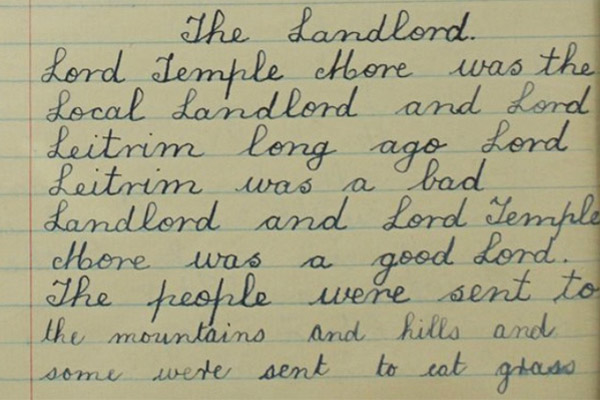 The Landlord.
Lord Temple More was the
Local Landlord and Lord
Leitrim long ago Lord
Leitrim was a bad
Landlord and Lord Temple
More was a good Lord.
The people were sent to
the mountains and hills and
some were sent to eat grass